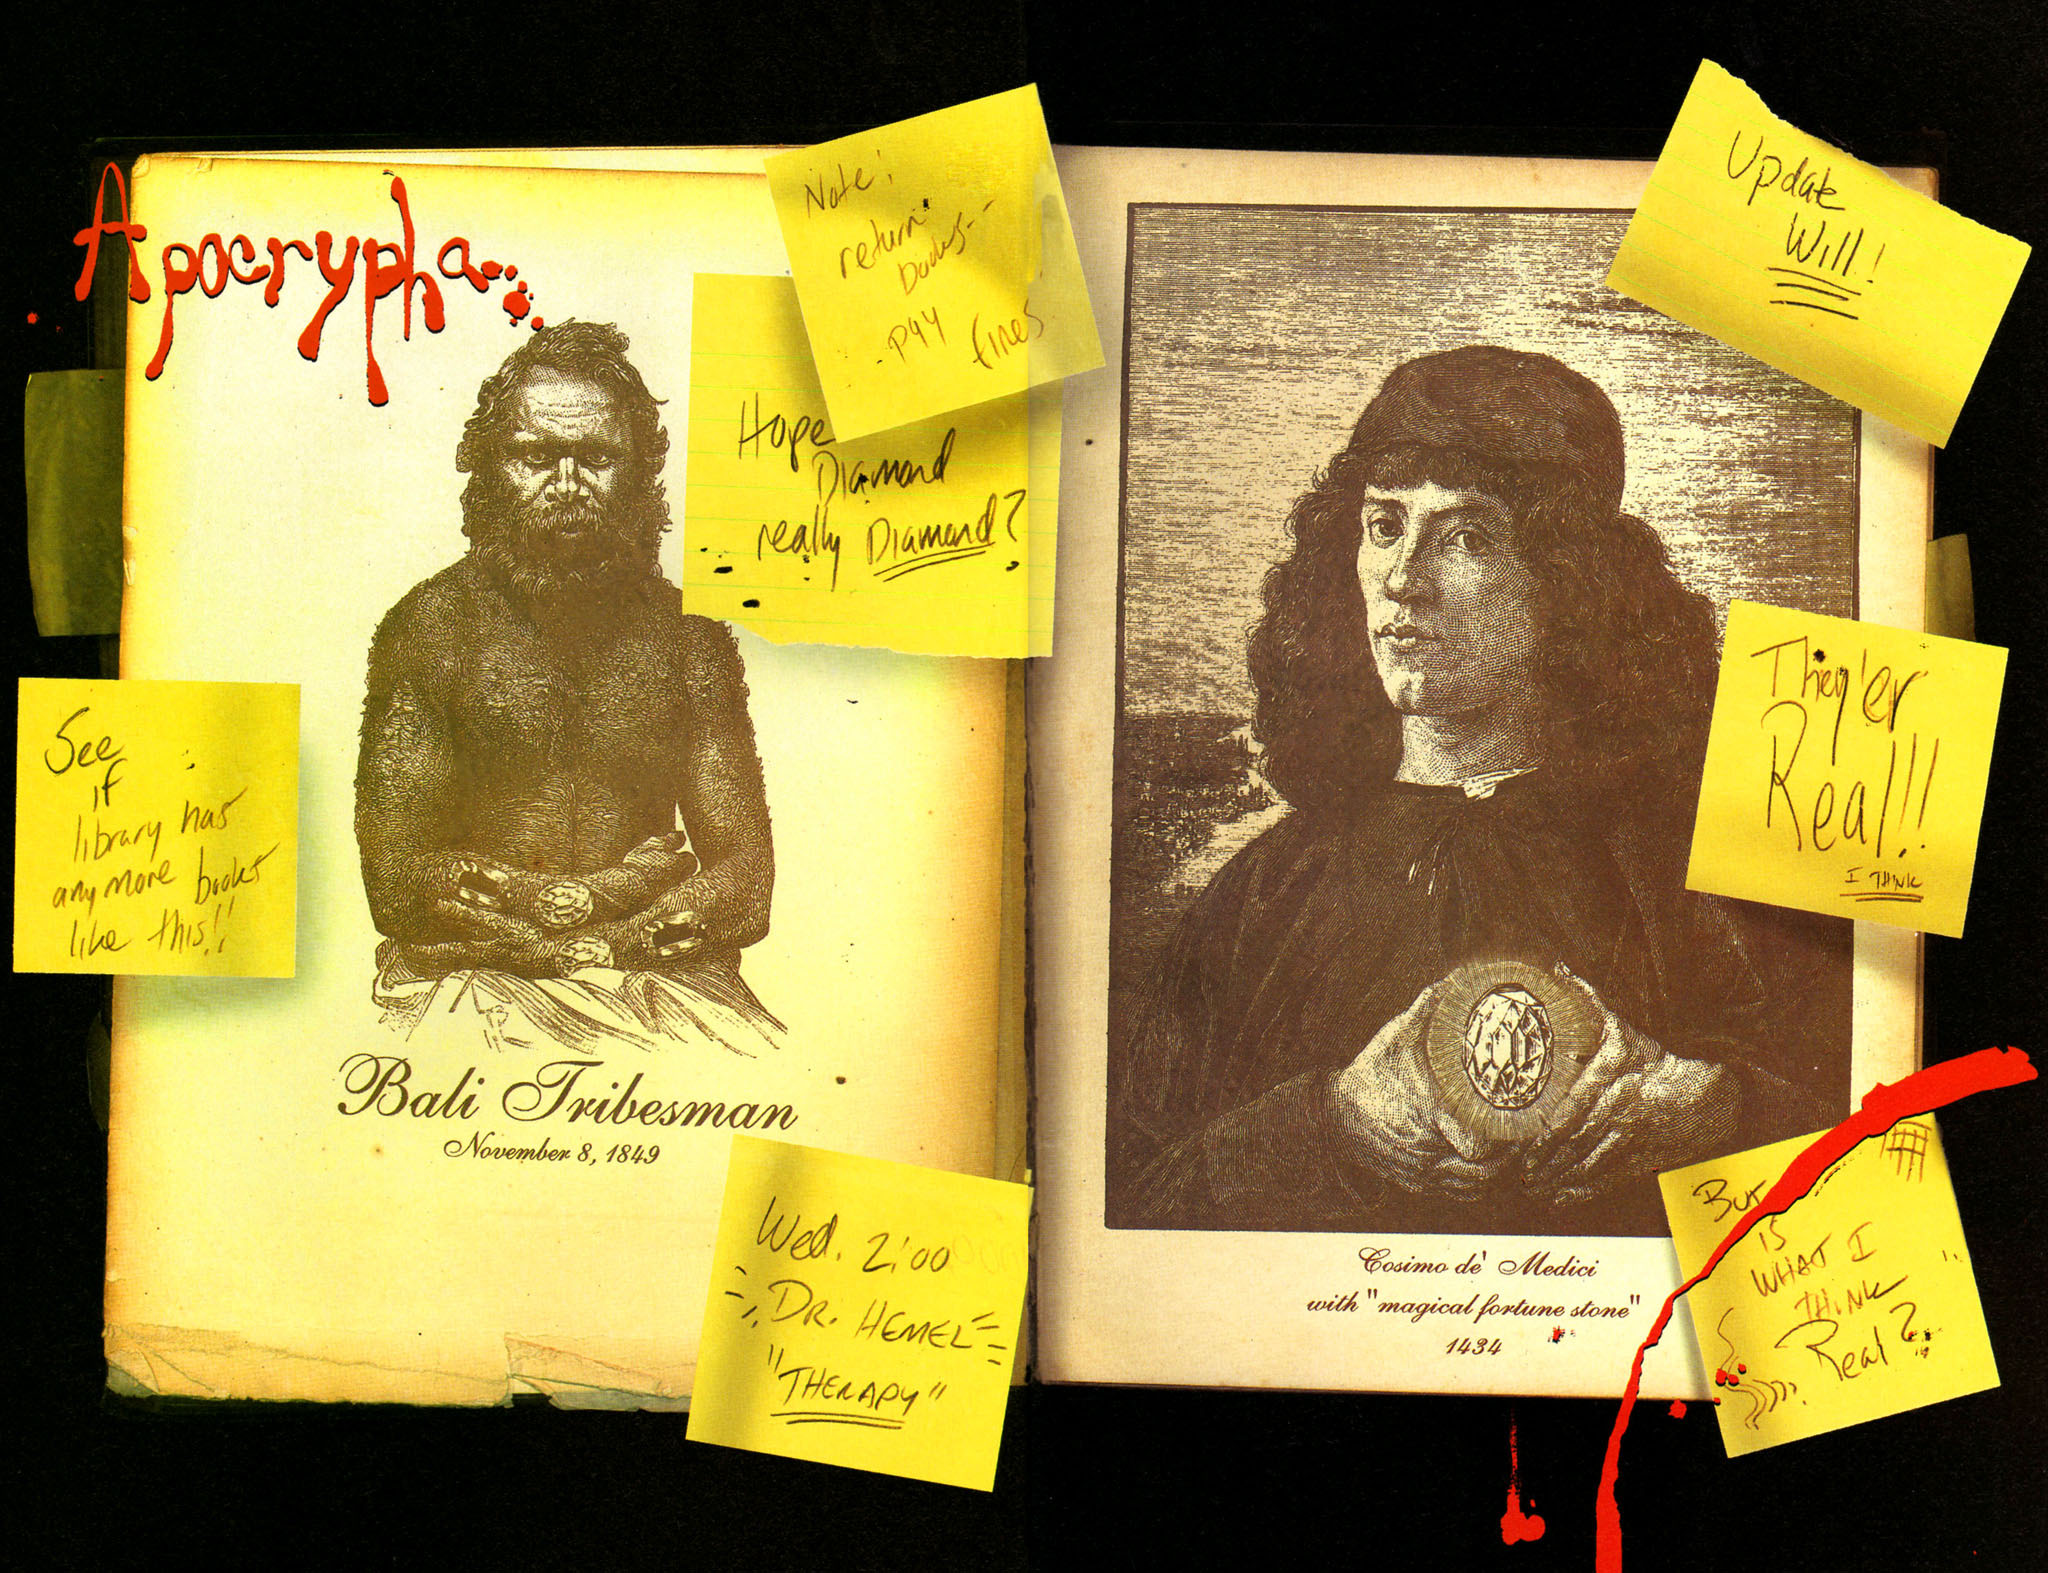 Apocrypha...
Note!
return
books--
-pay
fines
Hope
Diamond
really Diamond?
See
if
library has
anymore books
like this!!
Bali Tribesman
November 8, 1849
Wed. 2:00
DR. HEMEL
"THERAPY"
Update
Will!
They'er
Real!!!
I THINK
Cosimo dè Medici
with "magical fortune stone"
1434
But
IS
WHAT I
THINK
Real?